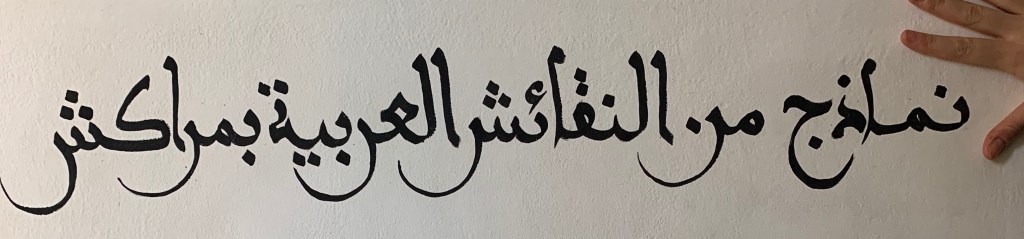 نماذج من النقائش العربية بمراكش